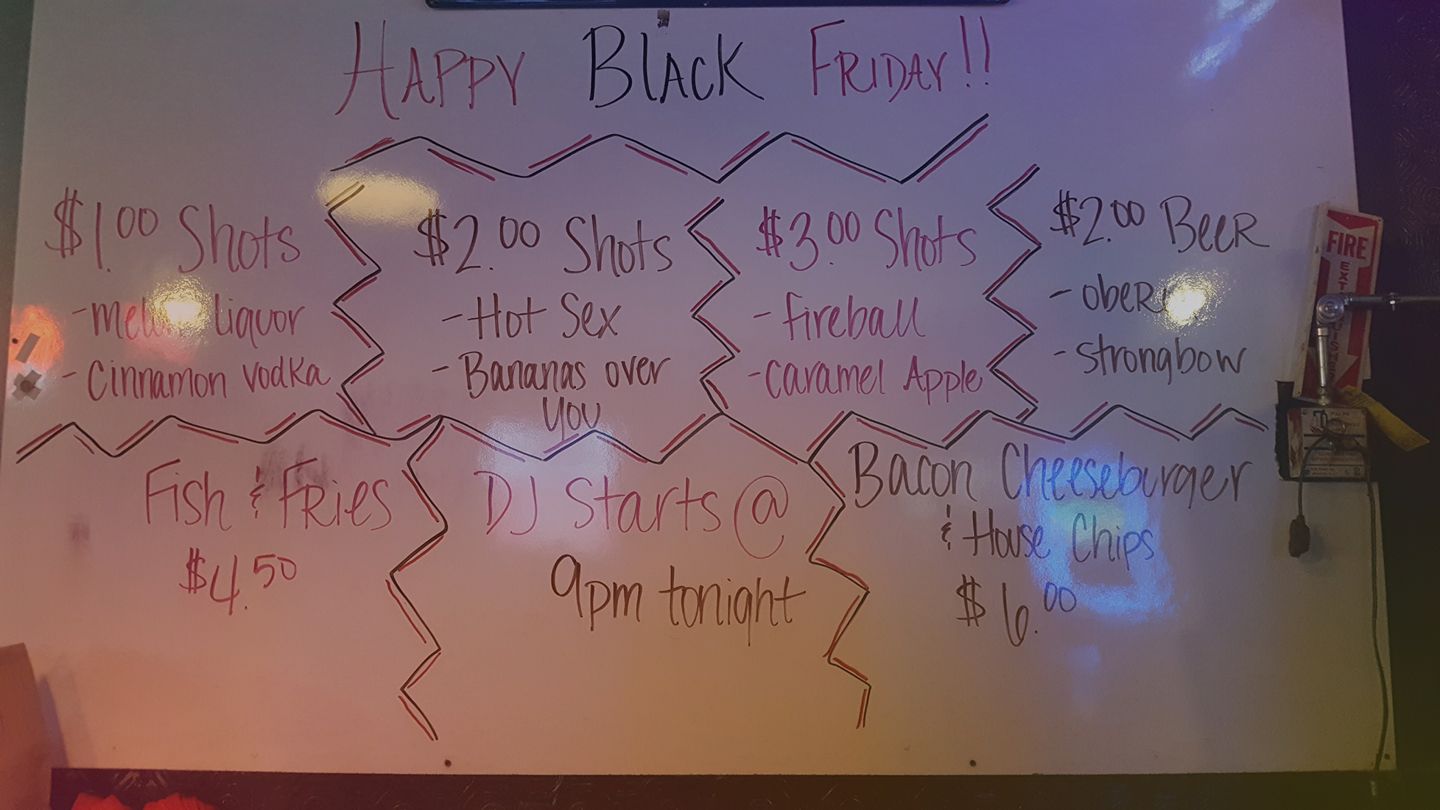 HAPPY BLACK FRIDAY!!
$1.00 Shots
- liquor
- Cinnamon vodka
$2.00 Shots
- Hot Sex
- Bananas over
you
$3.00 Shots
- fireball
- caramel Apple
$2.00 BEER
- strongbow
FIRE
Fish & FRies
$4.50
DJ Starts @
9pm tonight
Bacon Cheeseburger
& House Chips
$6.00